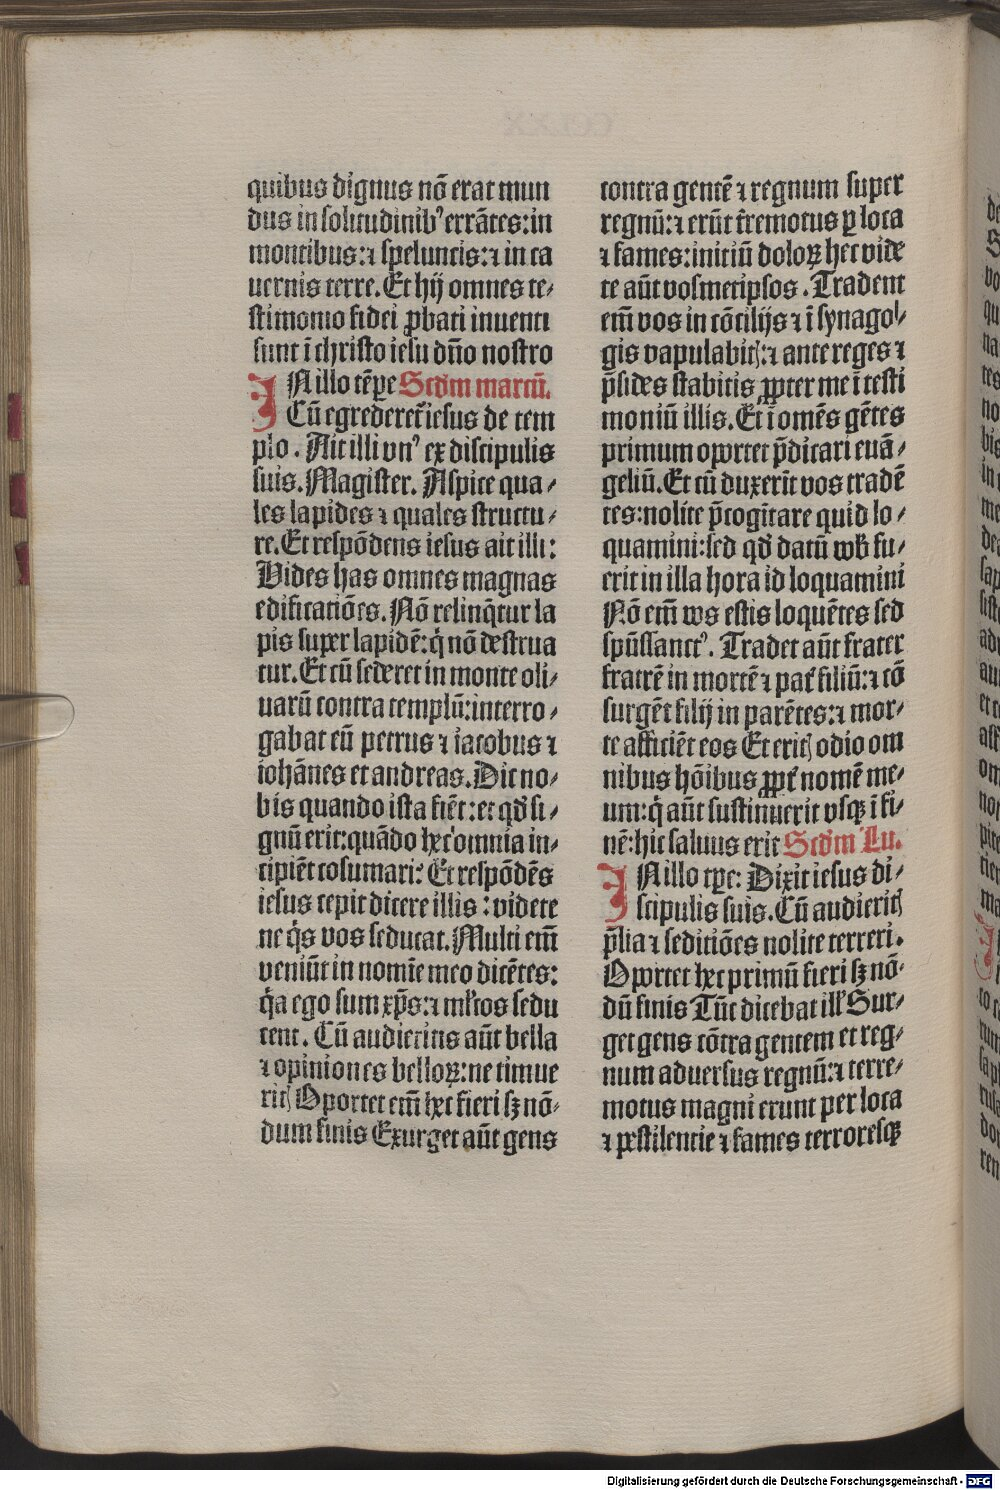 quibus dignus nō erat mun
dus in solitudinibꝰ errātes: in
montibus: ⁊ speluncis: ⁊ in ca
uernis terre. Et hij omnes te⸗
stimonio fidei ꝓbati inuenti
sunt ī christo iesu dn̄o nostro
IN illo tēꝑe Scd̄m marcū.
Cū egrederet᷑ iesus de tem
plo. Ait illi vnꝰ ex discipulis
suis. Magister. Aspice qua⸗
les lapides ⁊ quales structu⸗
re. Et respōdens iesus ait illi:
Vides has omnes magnas
edificatiōes. Nō relinq̄tur la
pis super lapidē: q̇ nō destrua
tur. Et cū sederet in monte oli⸗
uarū contra templū: interro⸗
gabāt eū petrus ⁊ iacobus ⁊
iohānes et andreas. Dic no⸗
bis quando ista fiēt: et qd̄ si⸗
gnū erit: quādo hec omnia in⸗
cipiēt cōsumari? Et respōdēs
iesus cepit dicere illis: videte
ne q̇s vos seducat. Multi em̄
veniūt in nomīe meo dicētes:
q̇a ego sum xp̄s: ⁊ ml̄tos sedu
cent. Cū audieritis aūt bella
⁊ opiniones belloꝝ: ne timue
ritꝭ Oportet em̄ hec fieri sꝫ nō⸗
dum finis Exurget aūt gens
contra gentē ⁊ regnum super
regnū: ⁊ erūt t̄remotus ꝑ loca
⁊ fames: initiū doloꝝ hec vide
te aūt vosmetipsos. Tradent
em̄ vos in cōcilijs ⁊ ī synago⸗
gis vapulabitꝭ: ⁊ ante reges ⁊
p̄sides stabitis ꝓpter me ī testi
moniū illis. Et ī omēs gētes
primum oportet p̄dicari euā⸗
geliū. Et cū duxerīt vos tradē
tes: nolite p̄cogitare quid lo⸗
quamini: sed qd̄ datū vob̄ fu⸗
erit in illa hora id loquamini
Nō em̄ vos estis loquētes sed
spūssanctꝰ. Tradet aūt frater
fratrē in mortē ⁊ pat̄ filiū: ⁊ cō
surgēt filij in parētes: ⁊ mor⸗
te afficiēt eos Et eritꝭ odio om
nibus hōibus ꝓpt̄ nomē me⸗
um: q̇ aūt sustinuerit vsqꝫ ī fi⸗
nē: hic saluus erit Scd̄m Lu.
IN illo tꝑe: Dixit iesus di⸗
scipulis suis. Cū audieritꝭ
p̄lia ⁊ seditiōes nolite terreri.
Oportet hec primū fieri sꝫ nō⸗
dū finis Tūc dicebat illꝭ Sur⸗
get gens cōtra gentem et reg⸗
num aduersus regnū: ⁊ terre⸗
motus magni erunt per loca
⁊ pestilentie ⁊ fames terroresqꝫ
Digitalisierung gefördert durch die Deutsche Forschungsgemeinschaft - DFG